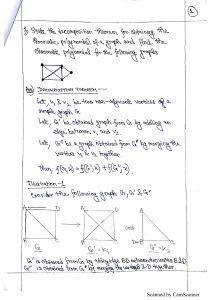 1
State the decomposition theorem for obtaining the
chromatic polynomial of a graph and find the
chromatic polynomial for the following graphs
Decomposition Theorem —
Let, v1 & v2 be two non-adjacent vertices of a
simple graph G.
Let, G' be obtained graph from G by adding an
edge between v1 and v2.
Let, G" be a graph obtained from G by merging the
vertices v1 & v2 together.
Illustration-1
Consider the following graph G, G' & G".
A D A D A
and
B C B C C
G G' = K4
G' is obtained from G by adding edge BD between vertex B & D
G" is obtained from G by merging the vertex B-D together.
Scanned by CamScanner